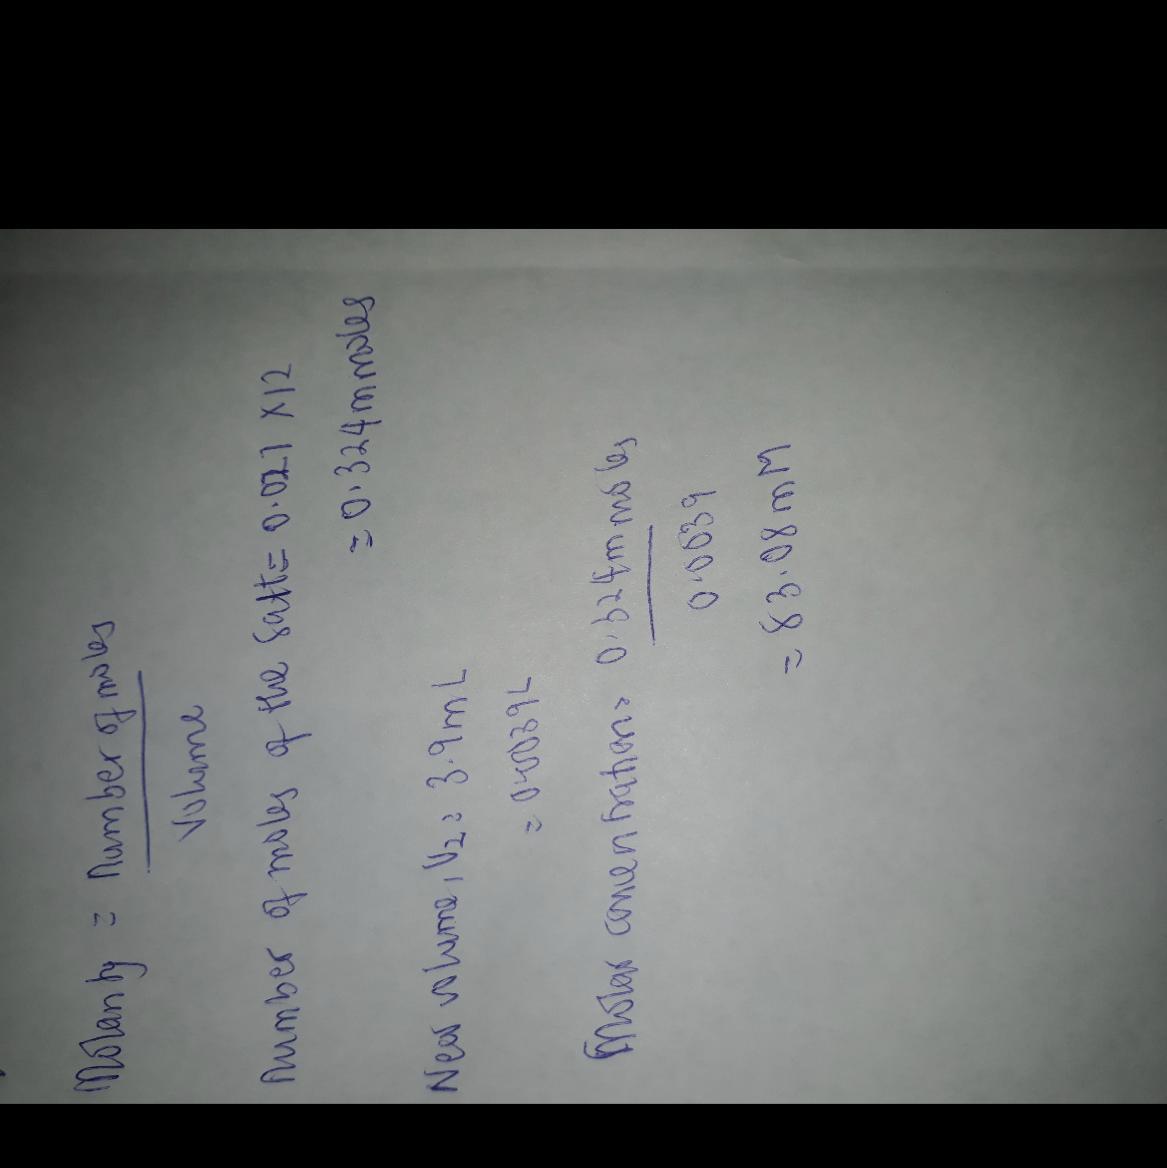 Molarity = number of moles
Volume
Number of moles of the salt = 0.027 × 12
= 0.324 mmoles
New volume, V2 = 3.9 mL
= 0.0039 L
Molar concentration = 0.324 mmoles
0.0039
= 83.08 mM